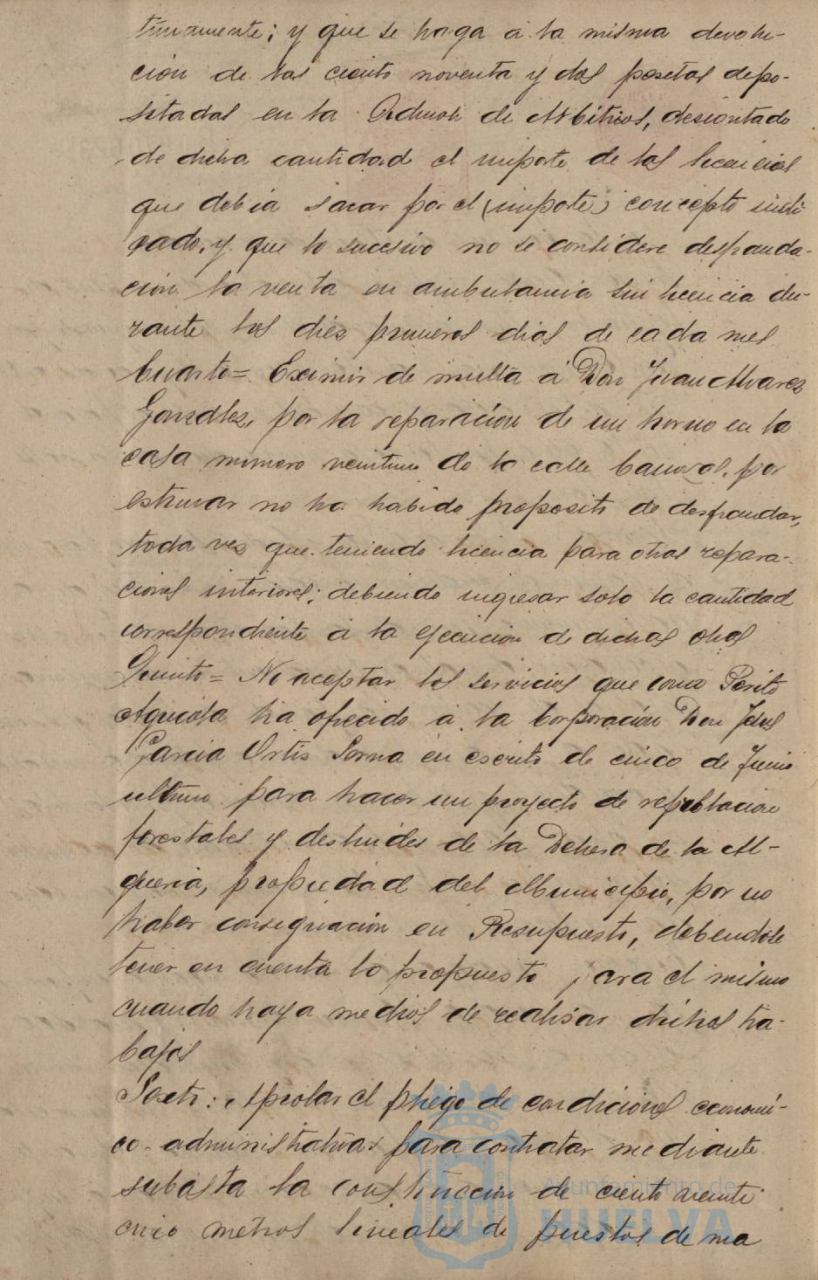 timamente; y que se haga á la misma devolu-
ción de las ciento noventa y dos pesetas depo-
sitadas en la Admon de Arbitrios, descontado
de dicha cantidad el importe de las licencias
que debia sacar por el (importe) concepto indi
cado, y que lo sucesivo no se considere defrauda-
ción la venta en ambulancia sin licencia du-
rante los diez primeros dias de cada mes
Cuarto= Eximir de multa á Don Juan Alvarez
González, por la reparación de un horno en la
casa número veintiuno de la calle por
estimar no ha habido proposito de defraudar,
toda vez que teniendo licencia para otras repara-
ciones interiores; debiendo ingresar solo la cantidad
correspondiente á la ejecución de dichas obras
Quinto= No aceptar los servicios que como Perito
Agricola ha ofrecido á la Corporación Don José
Garcia Ortiz en escrito de cinco de Junio
ultimo para hacer un proyecto de repoblacion
forestales y deslindes de la Dehesa de la Al-
queria, propiedad del Municipio, por no
haber consignación en Presupuesto, debiendole
tener en cuenta lo propuesto para el mismo
cuando haya medios de realisar dichos tra-
bajos
Sexto: Aprobar el pliego de condiciones economi-
co-administrativas para contratar mediante
subasta la construccion de ciento veinte
cinco metros lineales de puestos de ma
Ayuntamiento de
HUELVA